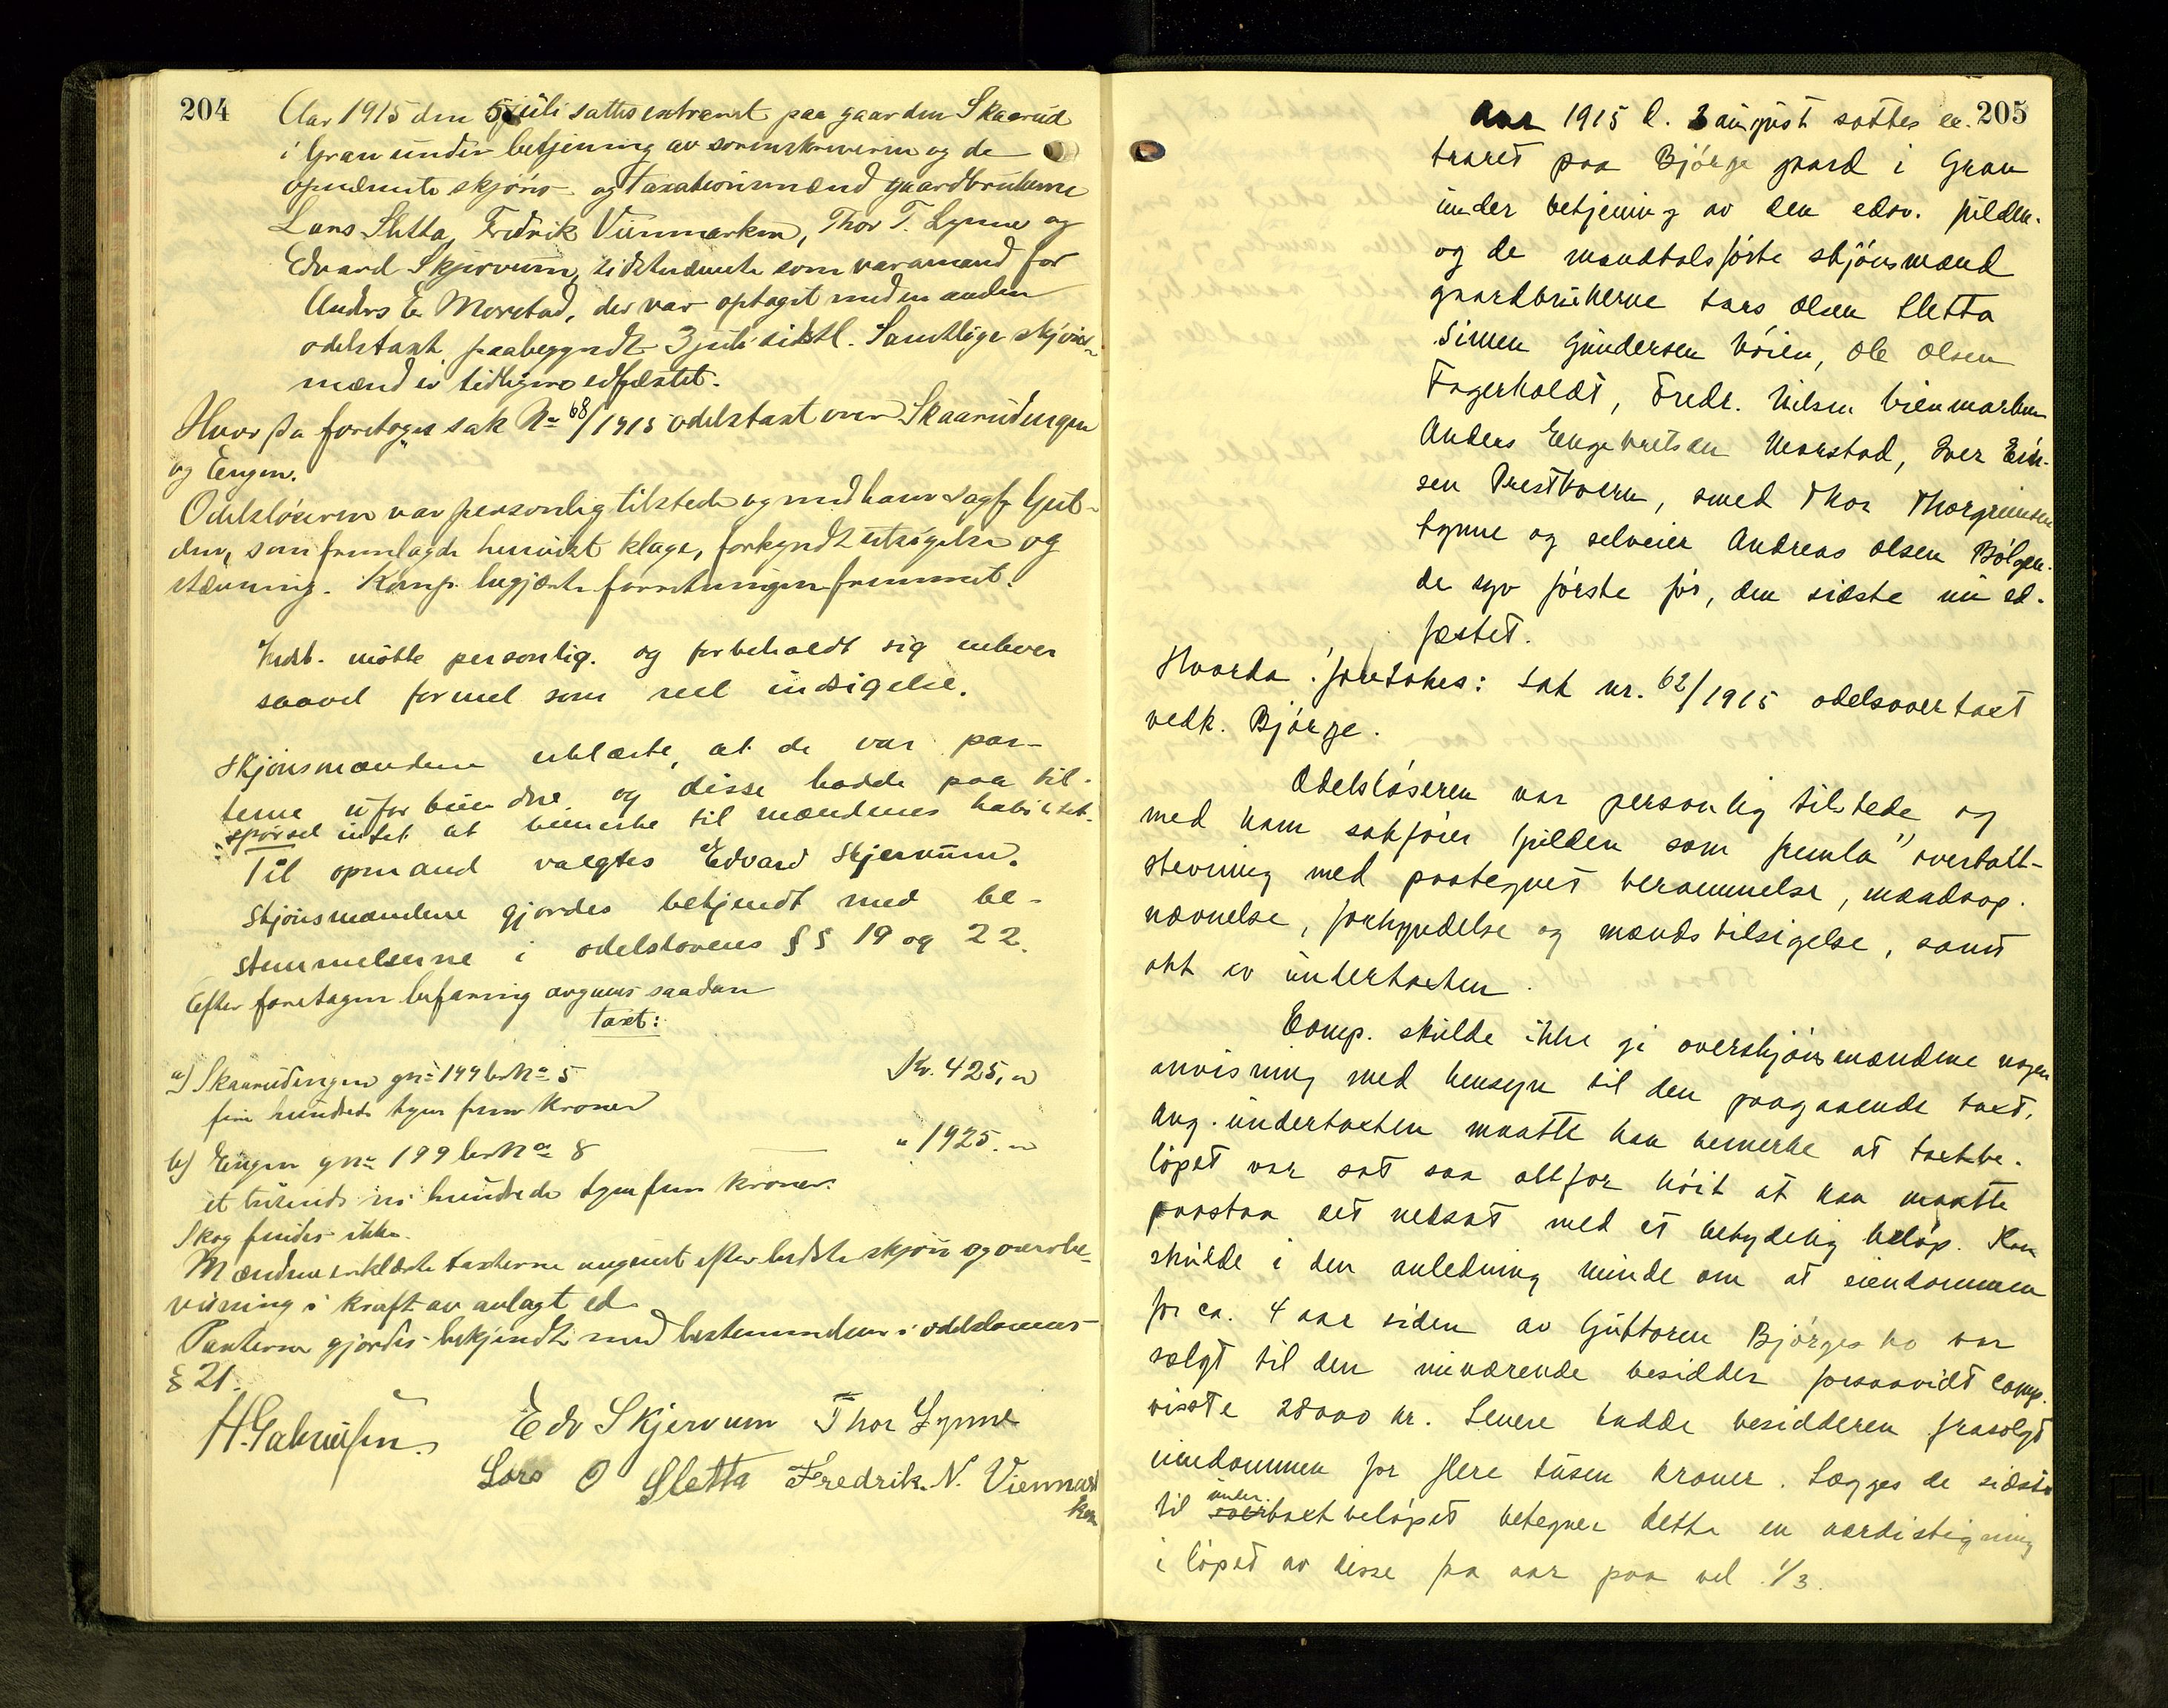 204
Aar 1915 den 5 juli sattes extraret paa gaarden Skaarud
i Gran under betjening av sorenskriveren og de
opnævnte skjøns- og taxationsmænd gaardbrukerne
Lars Sletta, Fredrik Vienmarken, Thor T. Lynne og
Edvard Skjervum, sidstnævnte som varamand for
Anders E. Morstad, der var optaget med en anden
odelstaxt paabegyndt 3 juli sidstl. Samtlige skjøns-
mænd er tidligere edfæstet.
Hvor da foretoges sak No 68/1915 odelstaxt over Skaarudengen
og Engen.
Odelsløseren var personlig tilstede og med ham sagf. Gul-
den, som fremlagde henvist klage, forkyndt utsigelse og
stævning. Komp. begjærte forretningen fremmet.
Indst. møtte personlig. og forbeholdt sig enhver
saavel formel som reel indsigelse.
Skjønsmændene erklærte, at de var par-
terne uforbundne. og disse hadde paa til-
spørsel intet at bemerke til mændenes habilitet.
Til opmand valgtes Edvard Skjervum.
Skjønsmændene gjordes bekjendt med be-
stemmelserne i odelslovens §§ 19 og 22.
Efter foretagen befaring avgaves saadan
taxt:
a) Skaarudengen gno 199 br No 5 Kr. 425,00
fire hundrede tyve fem kroner
b) Engen gno 199 br No 8 " 1925.00
et tusinde ni hundrede tyve fem kroner.
Skog findes ikke.
Mændene erklærte taxterne avgivet efter bedste skjøn og overbe-
visning i kraft av avlagt ed.
Parterne gjordes bekjendt med bestemmelsen i odelslovens
§ 21.
H. Gabrielsen. Edv Skjervum Thor Lynne
Lars O Sletta Fredrik. N. Vienmar
ken
205
Aar 1915 d. 3 august sattes ex-
traret paa Bjørge gaard i Gran
under betjening av den edsv. fuldm.
og de mandtalsførte skjønsmænd
gaardbrukerne Lars Olsen Sletta
Simen Gundersen Høien, Ole Olsen
Fagerholdt, Fredr. Nilsen Vienmarken
Anders Engebretsen Morstad, Iver Eiv-
sen Prestkvern, smed Thor Thorgrimsen
Lynne og selveier Andreas Olsen Bølgen.
de syv første før, den sidste nu ed-
fæstet.
Hvorda foretokes: Sak nr. 62/1915 odelsovertaxt
vedk. Bjørge.
Odelsløseren var personlig tilstede og
med ham sakfører Gulden som fremla overtakst-
stevning med paategnet berammelse, mandsop-
nævnelse, forkyndelse og mandstilsigelse, samt
akt av undertaxten.
Comp. skulde ikke gi overskjønsmændene nogen
anvisning med hensyn til den paagaaende taxt.
Ang. undertaxten maatte han bemerke at taxtbe-
løpet var sat saa altfor høit at han maatte
paastaa det nedsat med et betydelig beløp. Han
skulde i den anledning minde om at eiendommen
for ca. 4 aar siden av Guttorm Bjørges bo var
solgt til den nuværende besidder forsaavidt comp.
visste 28000 kr. Senere hadde besidderen frasolgt
eiendommen for flere tusen kroner. Lægges de sidste
til undertaxtbeløpet betegner dette en værdistigning
i løpet av disse fra aar paa vel 1/3.